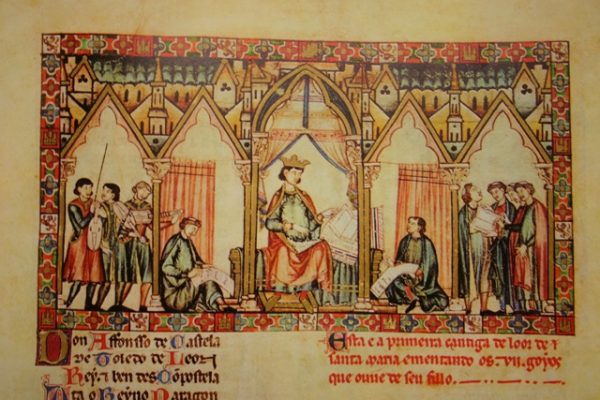 Don Affonsso de Castela
de Toledo de Leon
Rey. τ ben des Conpostela
Ata o Reyno Daragon
Esta e a primeira cantiga de loor de
santa maria ementando os. vii. goyos
que ouve de seu fillo.